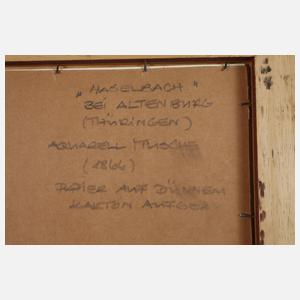 „HASELBACH"
BEI ALTENBURG
(THÜRINGEN)
AQUARELL / TUSCHE
(1864)
PAPIER AUF DÜNNEM
KARTON AUFGEZ.